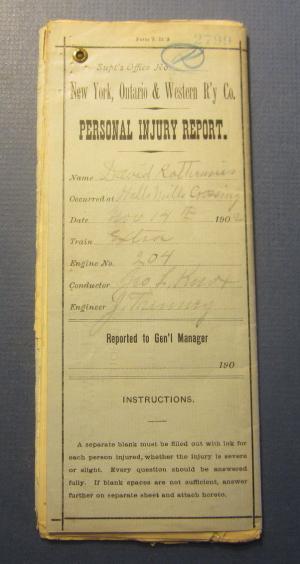 2790
Supt's Office No.
New York, Ontario & Western R'y Co.
PERSONAL INJURY REPORT.
Name David
Occurred at Halls Mills Crossing
Date Nov 14th 190
Train Extra
Engine No. 204
Conductor Geo. L. Knox
Engineer J.
Reported to Gen'l Manager
190
INSTRUCTIONS.
A separate blank must be filled out with ink for
each person injured, whether the injury is severe
or slight. Every question should be answered
fully. If blank spaces are not sufficient, answer
further on separate sheet and attach hereto.